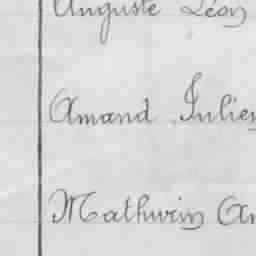 Auguste Léon
Amand Julien
Mathurin An